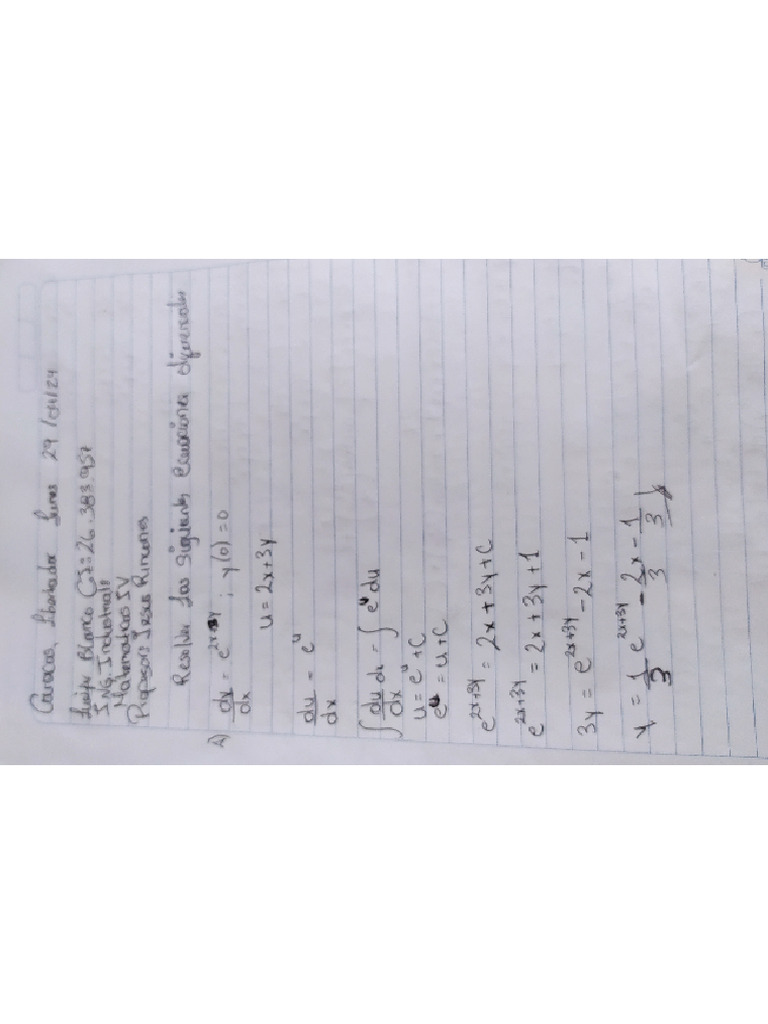 Caracas, Libertador Lunes 29/04/24
Luisfer Blanco CI=26.383.957
ING. Industrial
Matematicas IV
Profesor: Jesus Rincones
Resolver Las siguientes Ecuaciones diferenciales
A) dy/dx = e^{2x+3y} ; y(0)=0
u = 2x+3y
du/dx = e^u
∫ du/dx dx = ∫ e^u du
u = e^u + C
e^u = u + C
e^{2x+3y} = 2x + 3y + C
e^{2x+3y} = 2x + 3y + 1
3y = e^{2x+3y} - 2x - 1
y = 1/3 e^{2x+3y} - 2x/3 - 1/3